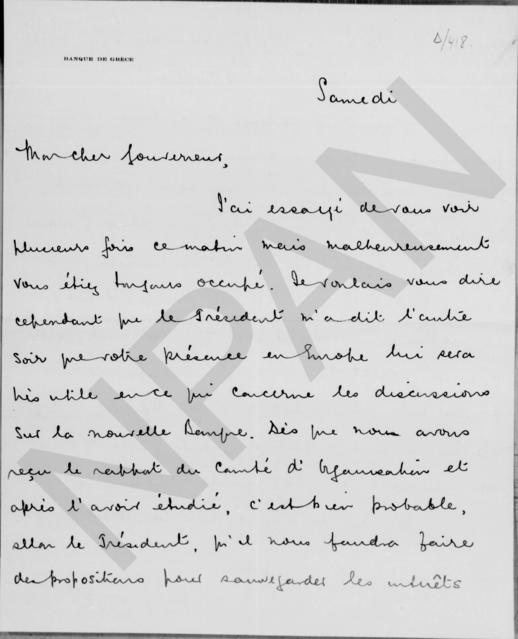 Δ/418.
BANQUE DE GRÈCE
Samedi
Mon cher Gouverneur,
J'ai essayé de vous voir
plusieurs fois ce matin mais malheureusement
vous étiez toujours occupé. Je voulais vous dire
cependant que le Président m'a dit l'autre
soir que votre présence en Europe lui sera
très utile en ce qui concerne les discussions
sur la nouvelle Banque. Dès que nous avons
reçu le rapport du Comité d'Organisation et
après l'avoir étudié, c'est bien probable,
selon le Président, qu'il nous faudra faire
des propositions pour sauvegarder les intérêts
NPAN